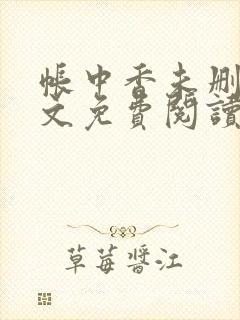 帳中香未刪
文免費閱讀
草莓醬江